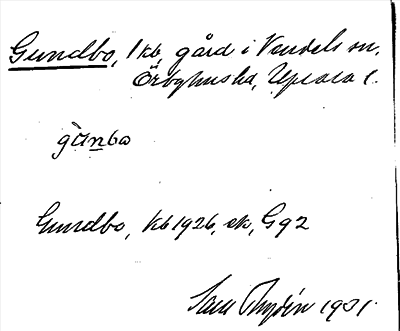 Gundbo, 1 kb, gård i Vendels sn,
Örbyhus hd, Upsala l.
gùnbo
Gundbo, kb 1926, ek, G92
Sam Rydén 1931.